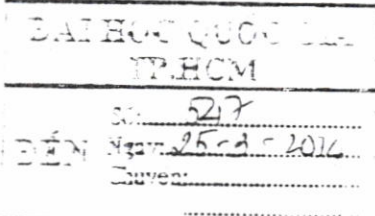 ĐẠI HỌC QUỐC GIA
TP.HCM
Số: 547
ĐẾN Ngày: 25-3-2014
Chuyển: